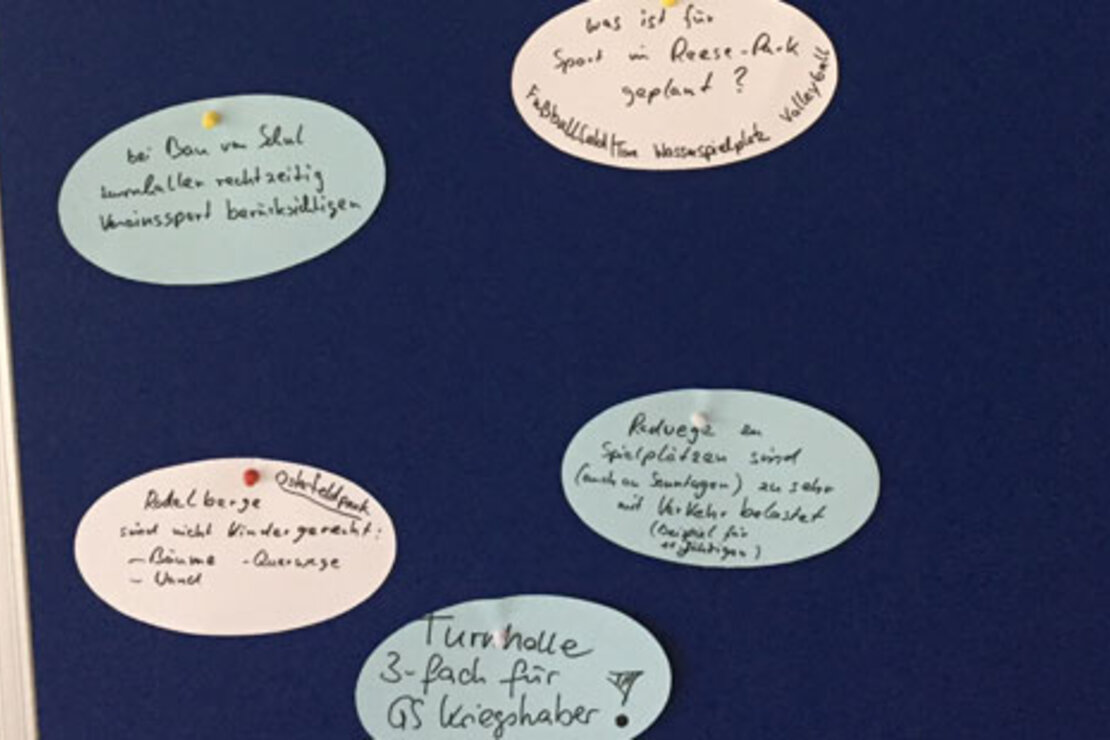 Was ist für
Sport im Reese-Park
geplant?
Fußballfeld/Tore Wasserspielplatz Volleyball
bei Bau von Schul
turnhallen rechtzeitig
Vereinssport berücksichtigen
Radwege zu
Spielplätzen sind
(auch an Sonntagen) zu sehr
mit Verkehr belastet
(Beispiel für
jährigen)
Rodelberge Osterfeldpark
sind nicht kindergerecht:
- Bäume - Querwege
-
Turnhalle
3-fach für
GS Kriegshaber!